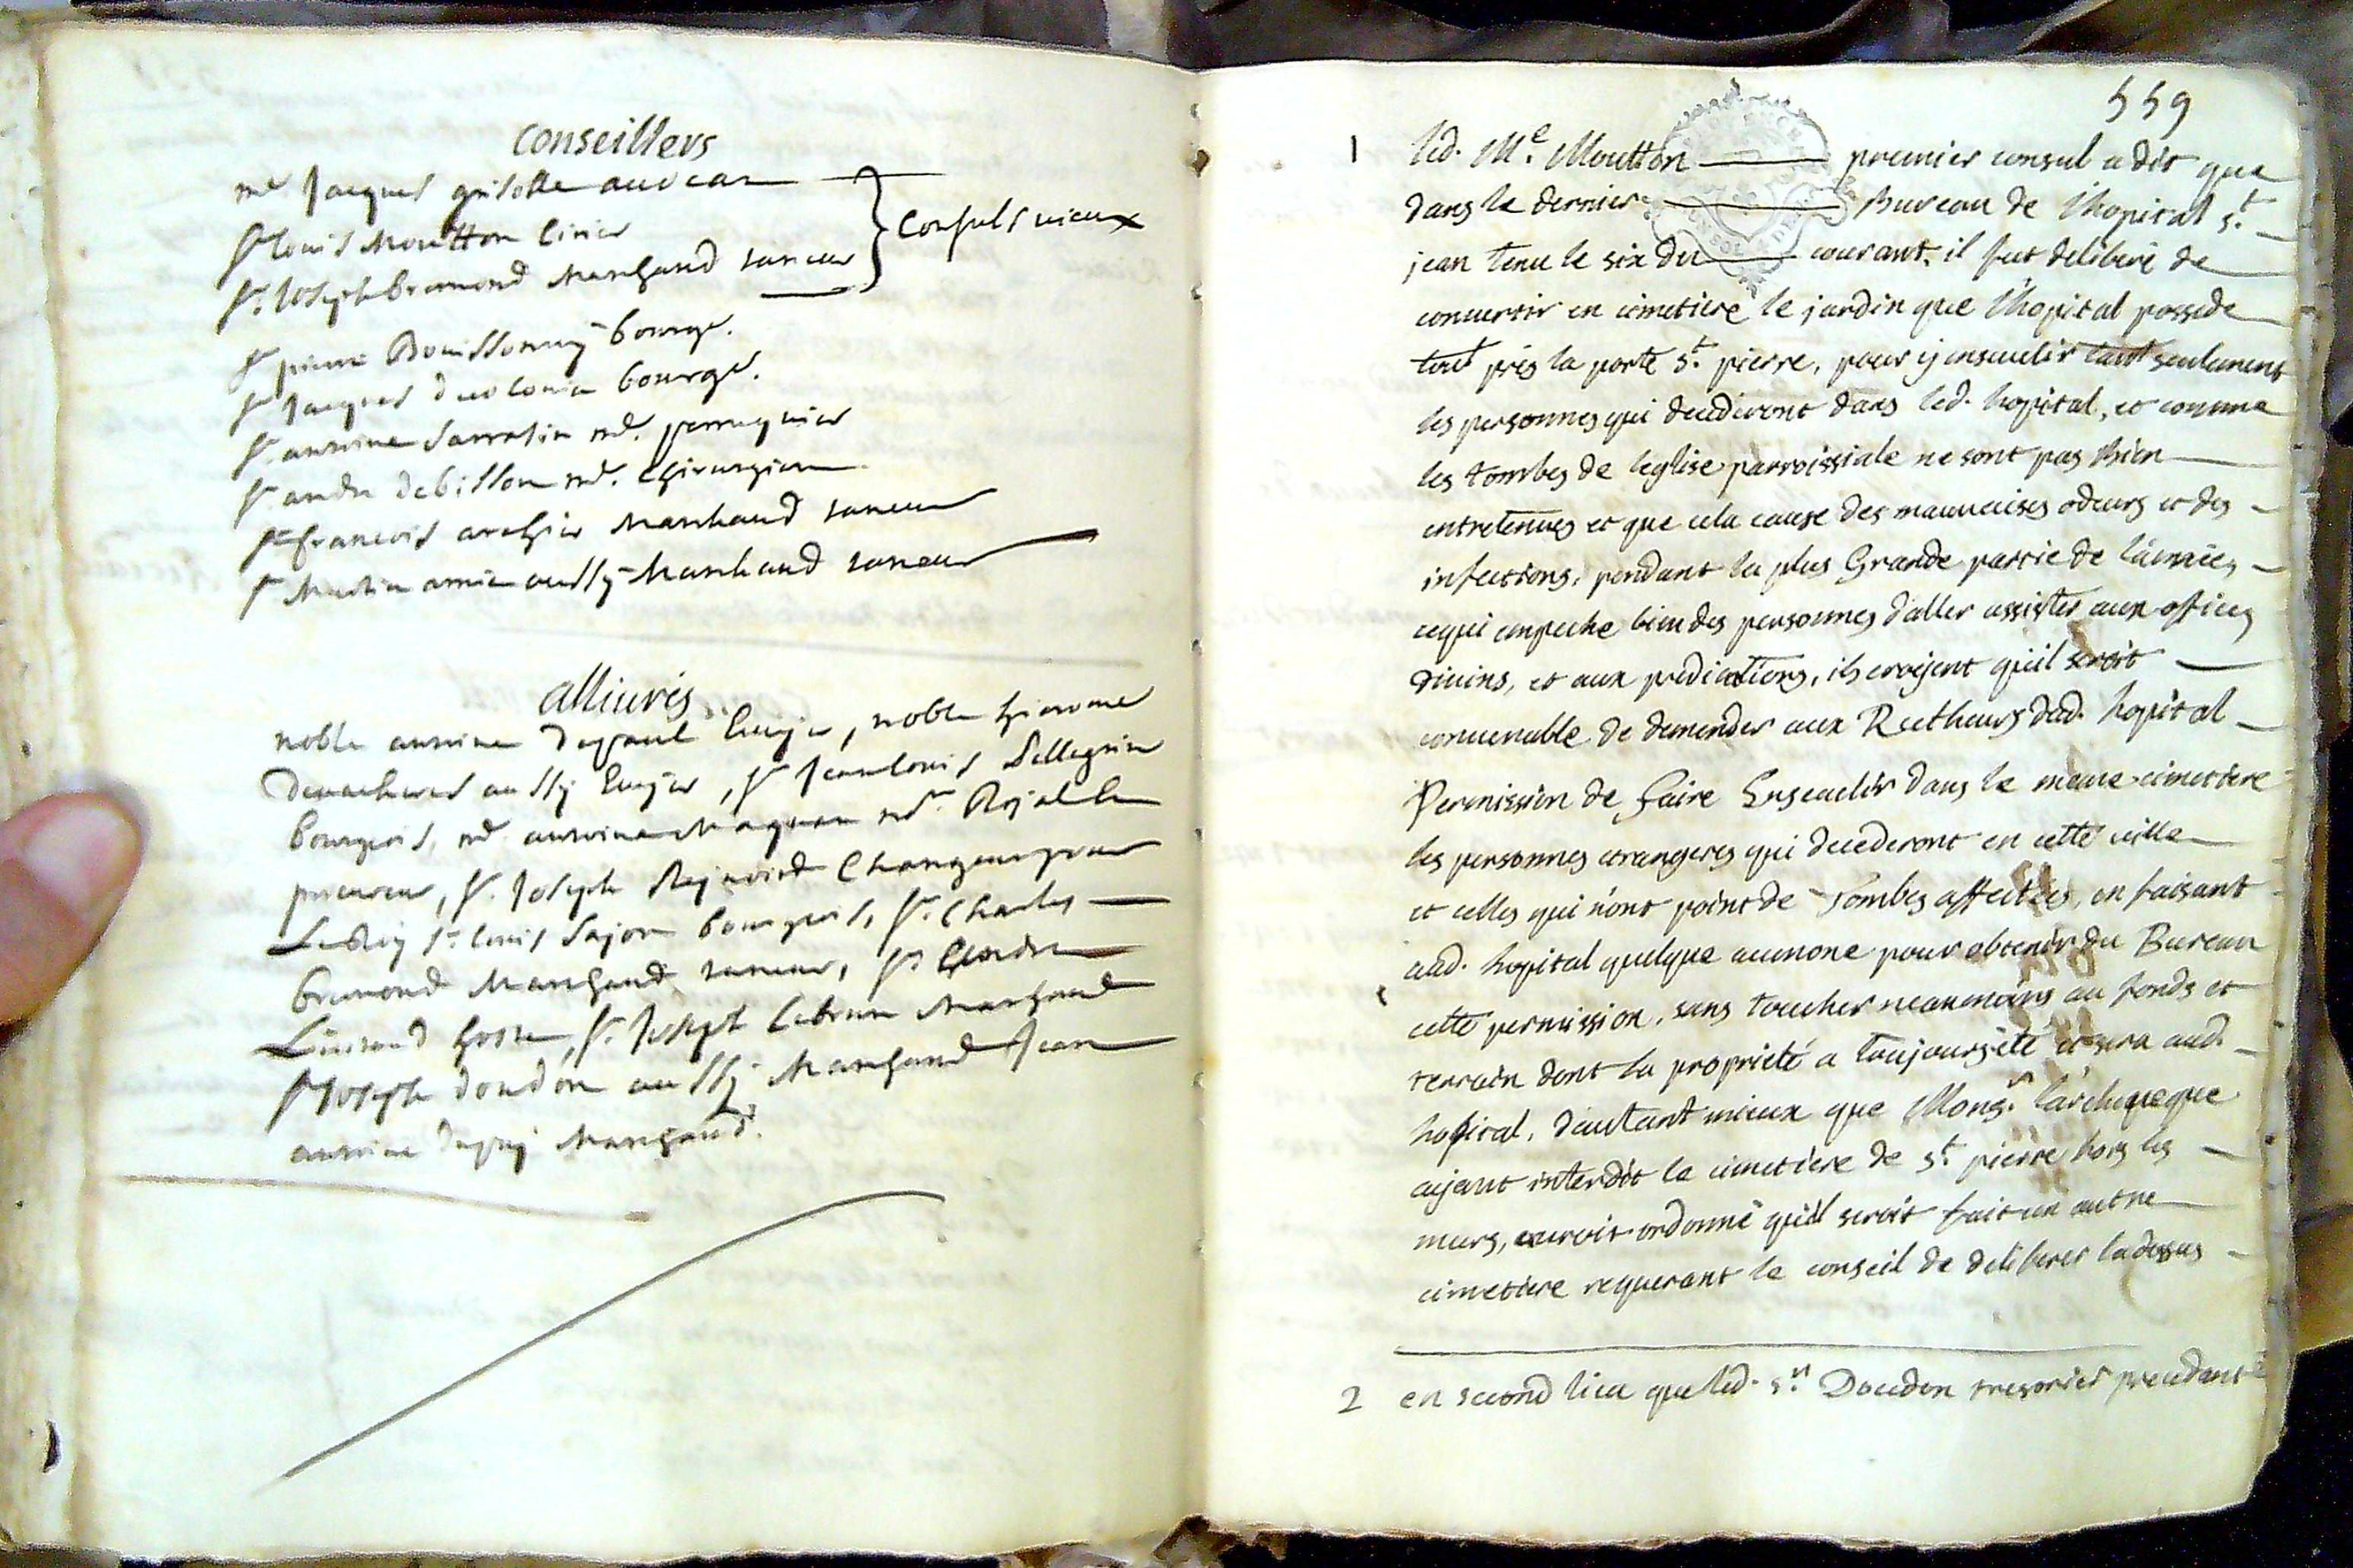 conseillers
me Jacques grisolle avocat
sr louis Moutton cirier
sr. Joseph bremond Marchand taneur
Consuls vieux
sr pierre Bouissonny bourgs.
sr Jacques bourgs.
sr. antoine Sarrasin me. perruquier
sr. andre debillon me. chirurgien
sr francois Marchand taneur
sr Martin amic aussy Marchand taneur
allivrés
noble antoine depaul Ecuyer, noble hierome
aussy Ecuyer, sr Jean louis Pellegrin
bourgeois, me antoine Maquan nore. Royal et
procureur, sr. Joseph Changeur pour
Le Roy sr. louis Sajon bourgeois, sr. Charles
bremond Marchand taneur, sr
hoste, sr. Joseph Lebrun Marchand
sr Joseph doudon aussy Marchand Jean
antoine dupuy Marchand.
559
1 led. Me. Moutton premier consul a dit que
dans le dernier Bureau de l'hopital st.
jean tenu le six du courant, il fut deliberé de
convertir en cimetiere le jardin que l'hopital possede
tout prés la porte st. pierre, pour y ensevelir tant seulement
les personnes qui decederont dans led. hopital, et comme
les tombes de leglise parroissiale ne sont pas bien
entretenues et que cela cause des mauvaises odeurs et des
infections, pendant la plus Grande partie de l'année,
cequi empeche bien des personnes d'aller assister aux offices
divins, et aux predications, ils croyent qu'il seroit
convenable de demender aux Rectheurs dud. hopital
Permission de faire Ensevelir dans le meme cimetiere
les personnes etrangeres qui decederont en cette ville
et celles qui n'ont point de Tombes affectées, en faisant
aud. hopital quelque aumone pour obtenir du Bureau
cette permission, sans toucher neanmoins au fonds et
terrain dont la proprieté a toujours été et sera aud.
hopital, d'autant mieux que Mongr. l'archeveque
ayant interdit le cimetiere de st. pierre hors les
murs, auroit ordonné qu'il seroit fait un autre
cimetiere requerant le conseil de deliberer ladessus
2 en second lieu que led. sr. Doudon tresorier pretendant